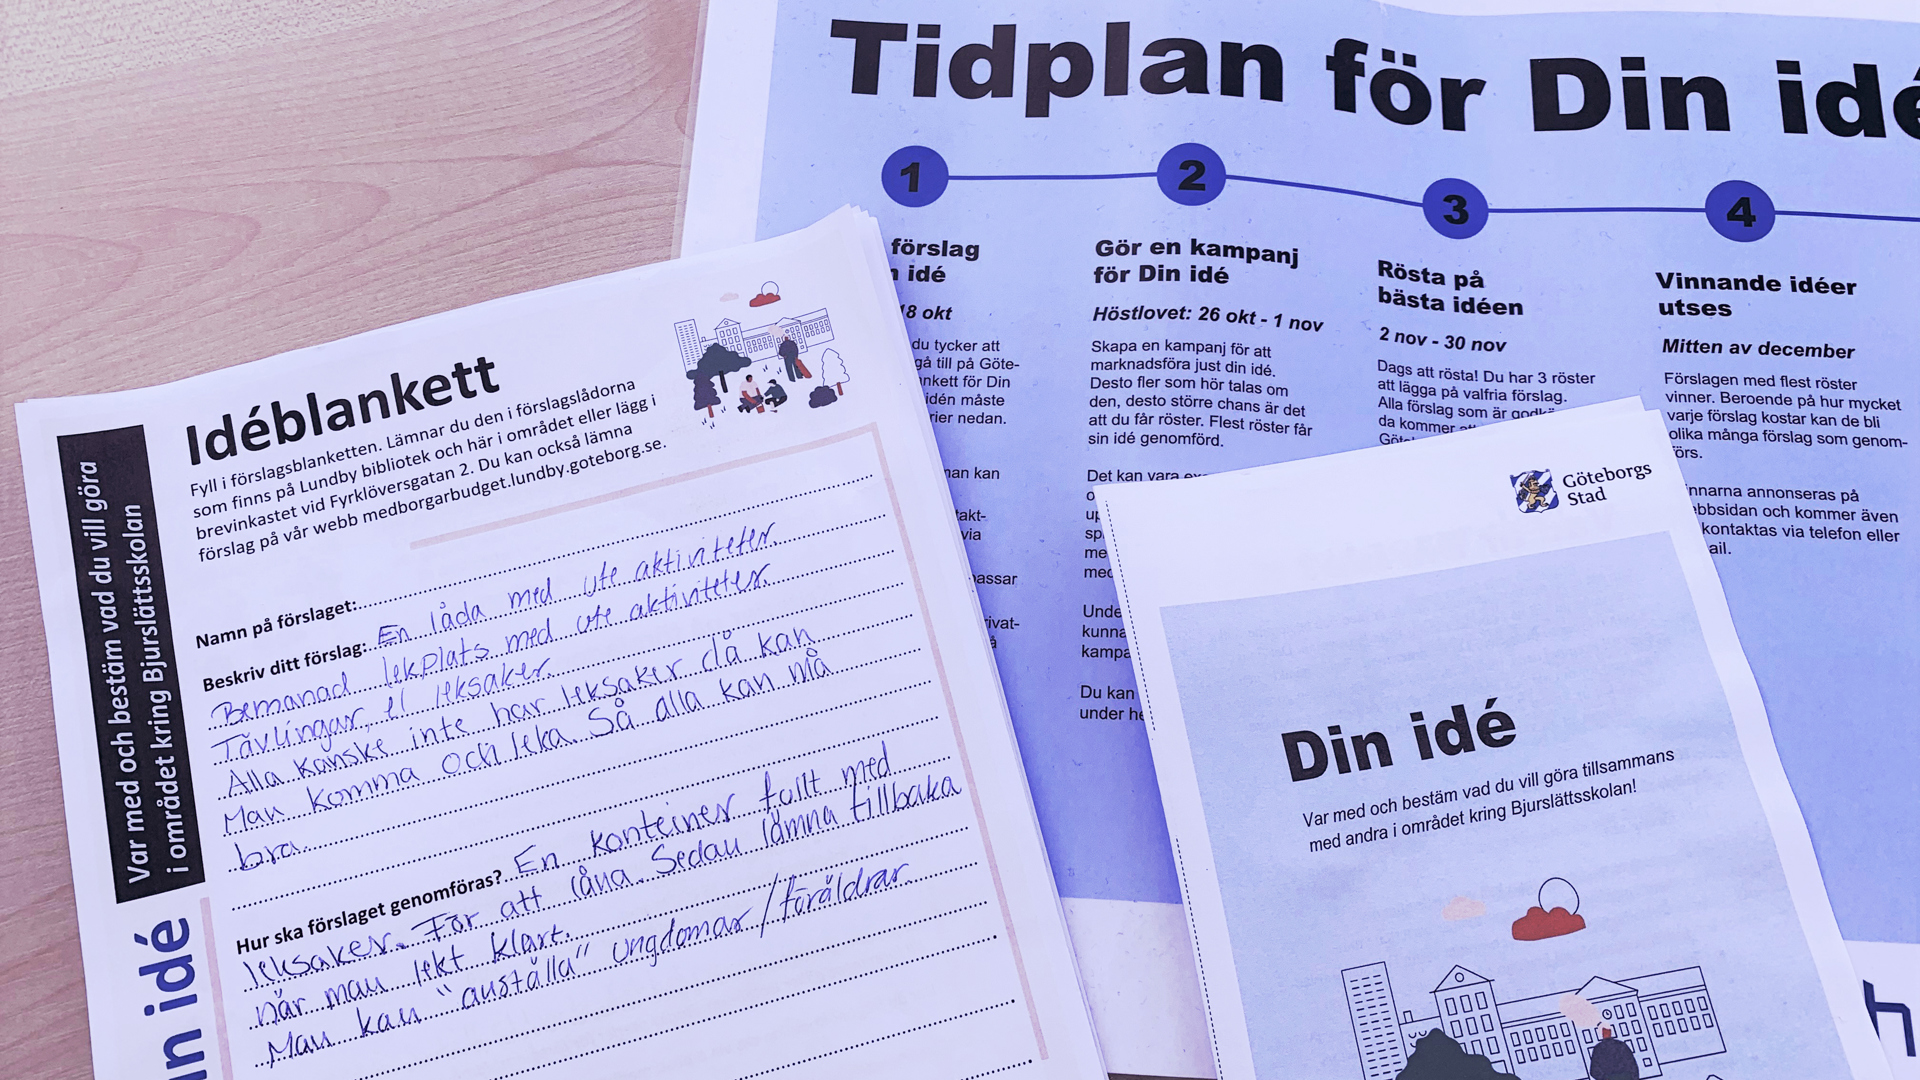 Tidplan för Din idé
1
2
3
4
förslag
idé
18 okt
du tycker att
gå till på Göte-
för Din
idén måste
nedan.
kan
via
Gör en kampanj
för Din idé
Höstlovet: 26 okt - 1 nov
Skapa en kampanj för att
marknadsföra just din idé.
Desto fler som hör talas om
den, desto större chans är det
att du får röster. Flest röster får
sin idé genomförd.
Det kan vara
Du kan
under
Rösta på
bästa idéen
2 nov - 30 nov
Dags att rösta! Du har 3 röster
att lägga på valfria förslag.
Alla förslag som är
da kommer
Vinnande idéer
utses
Mitten av december
Förslagen med flest röster
vinner. Beroende på hur mycket
varje förslag kostar kan de bli
olika många förslag som genom-
förs.
annonseras på
och kommer även
kontaktas via telefon eller
Var med och bestäm vad du vill göra
i området kring Bjurslättsskolan
idé
Idéblankett
Fyll i förslagsblanketten. Lämnar du den i förslagslådorna
som finns på Lundby bibliotek och här i området eller lägg i
brevinkastet vid Fyrklöversgatan 2. Du kan också lämna
förslag på vår webb medborgarbudget.lundby.goteborg.se.
Namn på förslaget:
Beskriv ditt förslag: En låda med ute aktiviteter.
Bemanad lekplats med ute aktiviteter.
Tävlingar, el leksaker.
Alla kanske inte har leksaker då kan
Man komma och leka. Så alla kan må
bra.
Hur ska förslaget genomföras? En konteiner fullt med
leksaker. För att låna. Sedan lämna tillbaka
när man lekt klart.
Man kan "anställa" ungdomar/föräldrar.
Göteborgs
Stad
Din idé
Var med och bestäm vad du vill göra tillsammans
med andra i området kring Bjurslättsskolan!